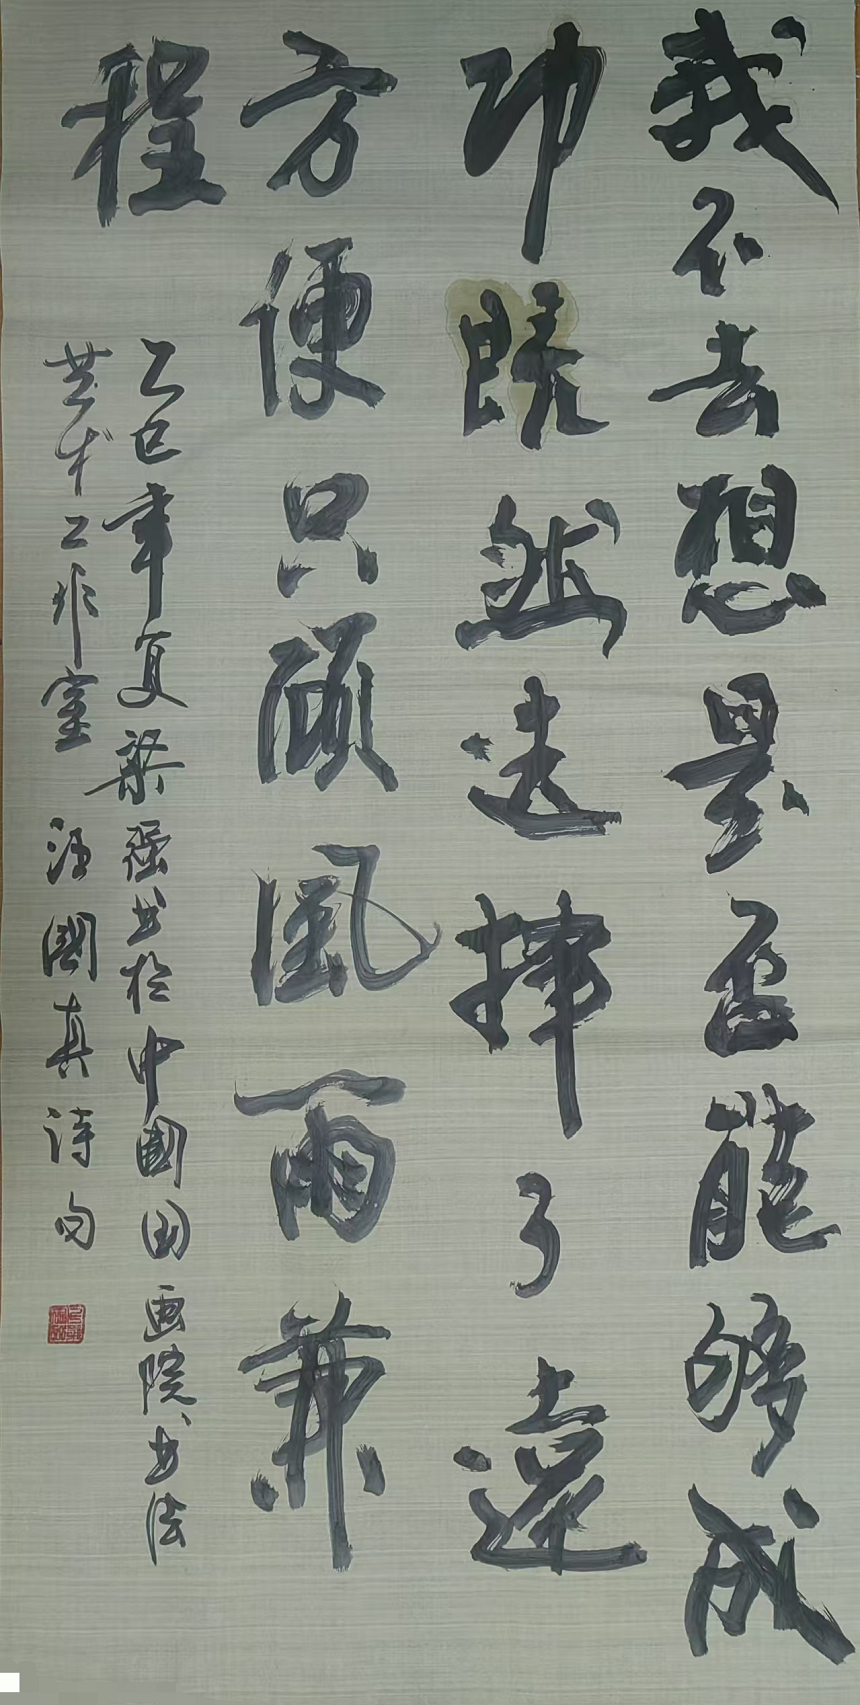 我不去想是否能够成
功既然选择了遠
方便只顾風雨兼
程
乙巳年夏梁强书於中國国画院书法
艺术工作室 汪國真诗句